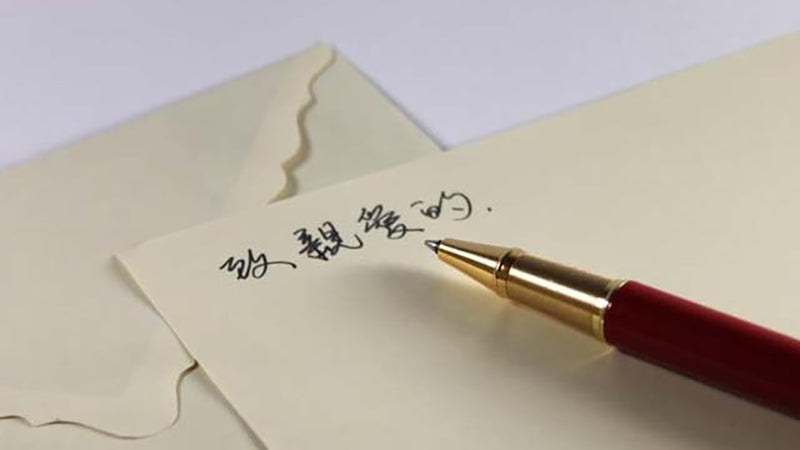 致親愛的.